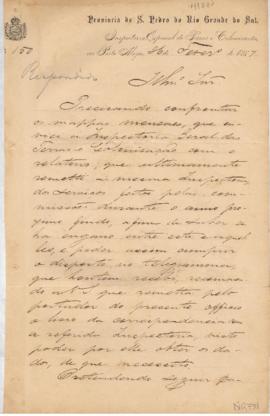 Provincia de S. Pedro do Rio Grande do Sul.
Inspectoria Especial de Terras e Colonisação,
em Porto Alegre, 26 de Fever.º de 1887.
Nº 150
Respondido
Illmº Snr
Precisando confrontar
os mappas mensaes, que en-
viei a Inspectoria Geral das
Terras e Colonisação com o
relatorio, que ultimamente
remetti a mesma Inspectoria,
dos serviços feitos pelas com-
missões durante o anno pro-
ximo findo, afim de saber se
ha engano entre este e aquel-
les, e poder assim cumprir
o disposto no telegramma,
que hontem recebi, recomen-
do a V. S. que remetta pelo
portador do presente officio
o livro da correspondencia
a referida Inspectoria, visto
poder por elle obter os da-
dos, de que necessito.
Pretendendo seguir